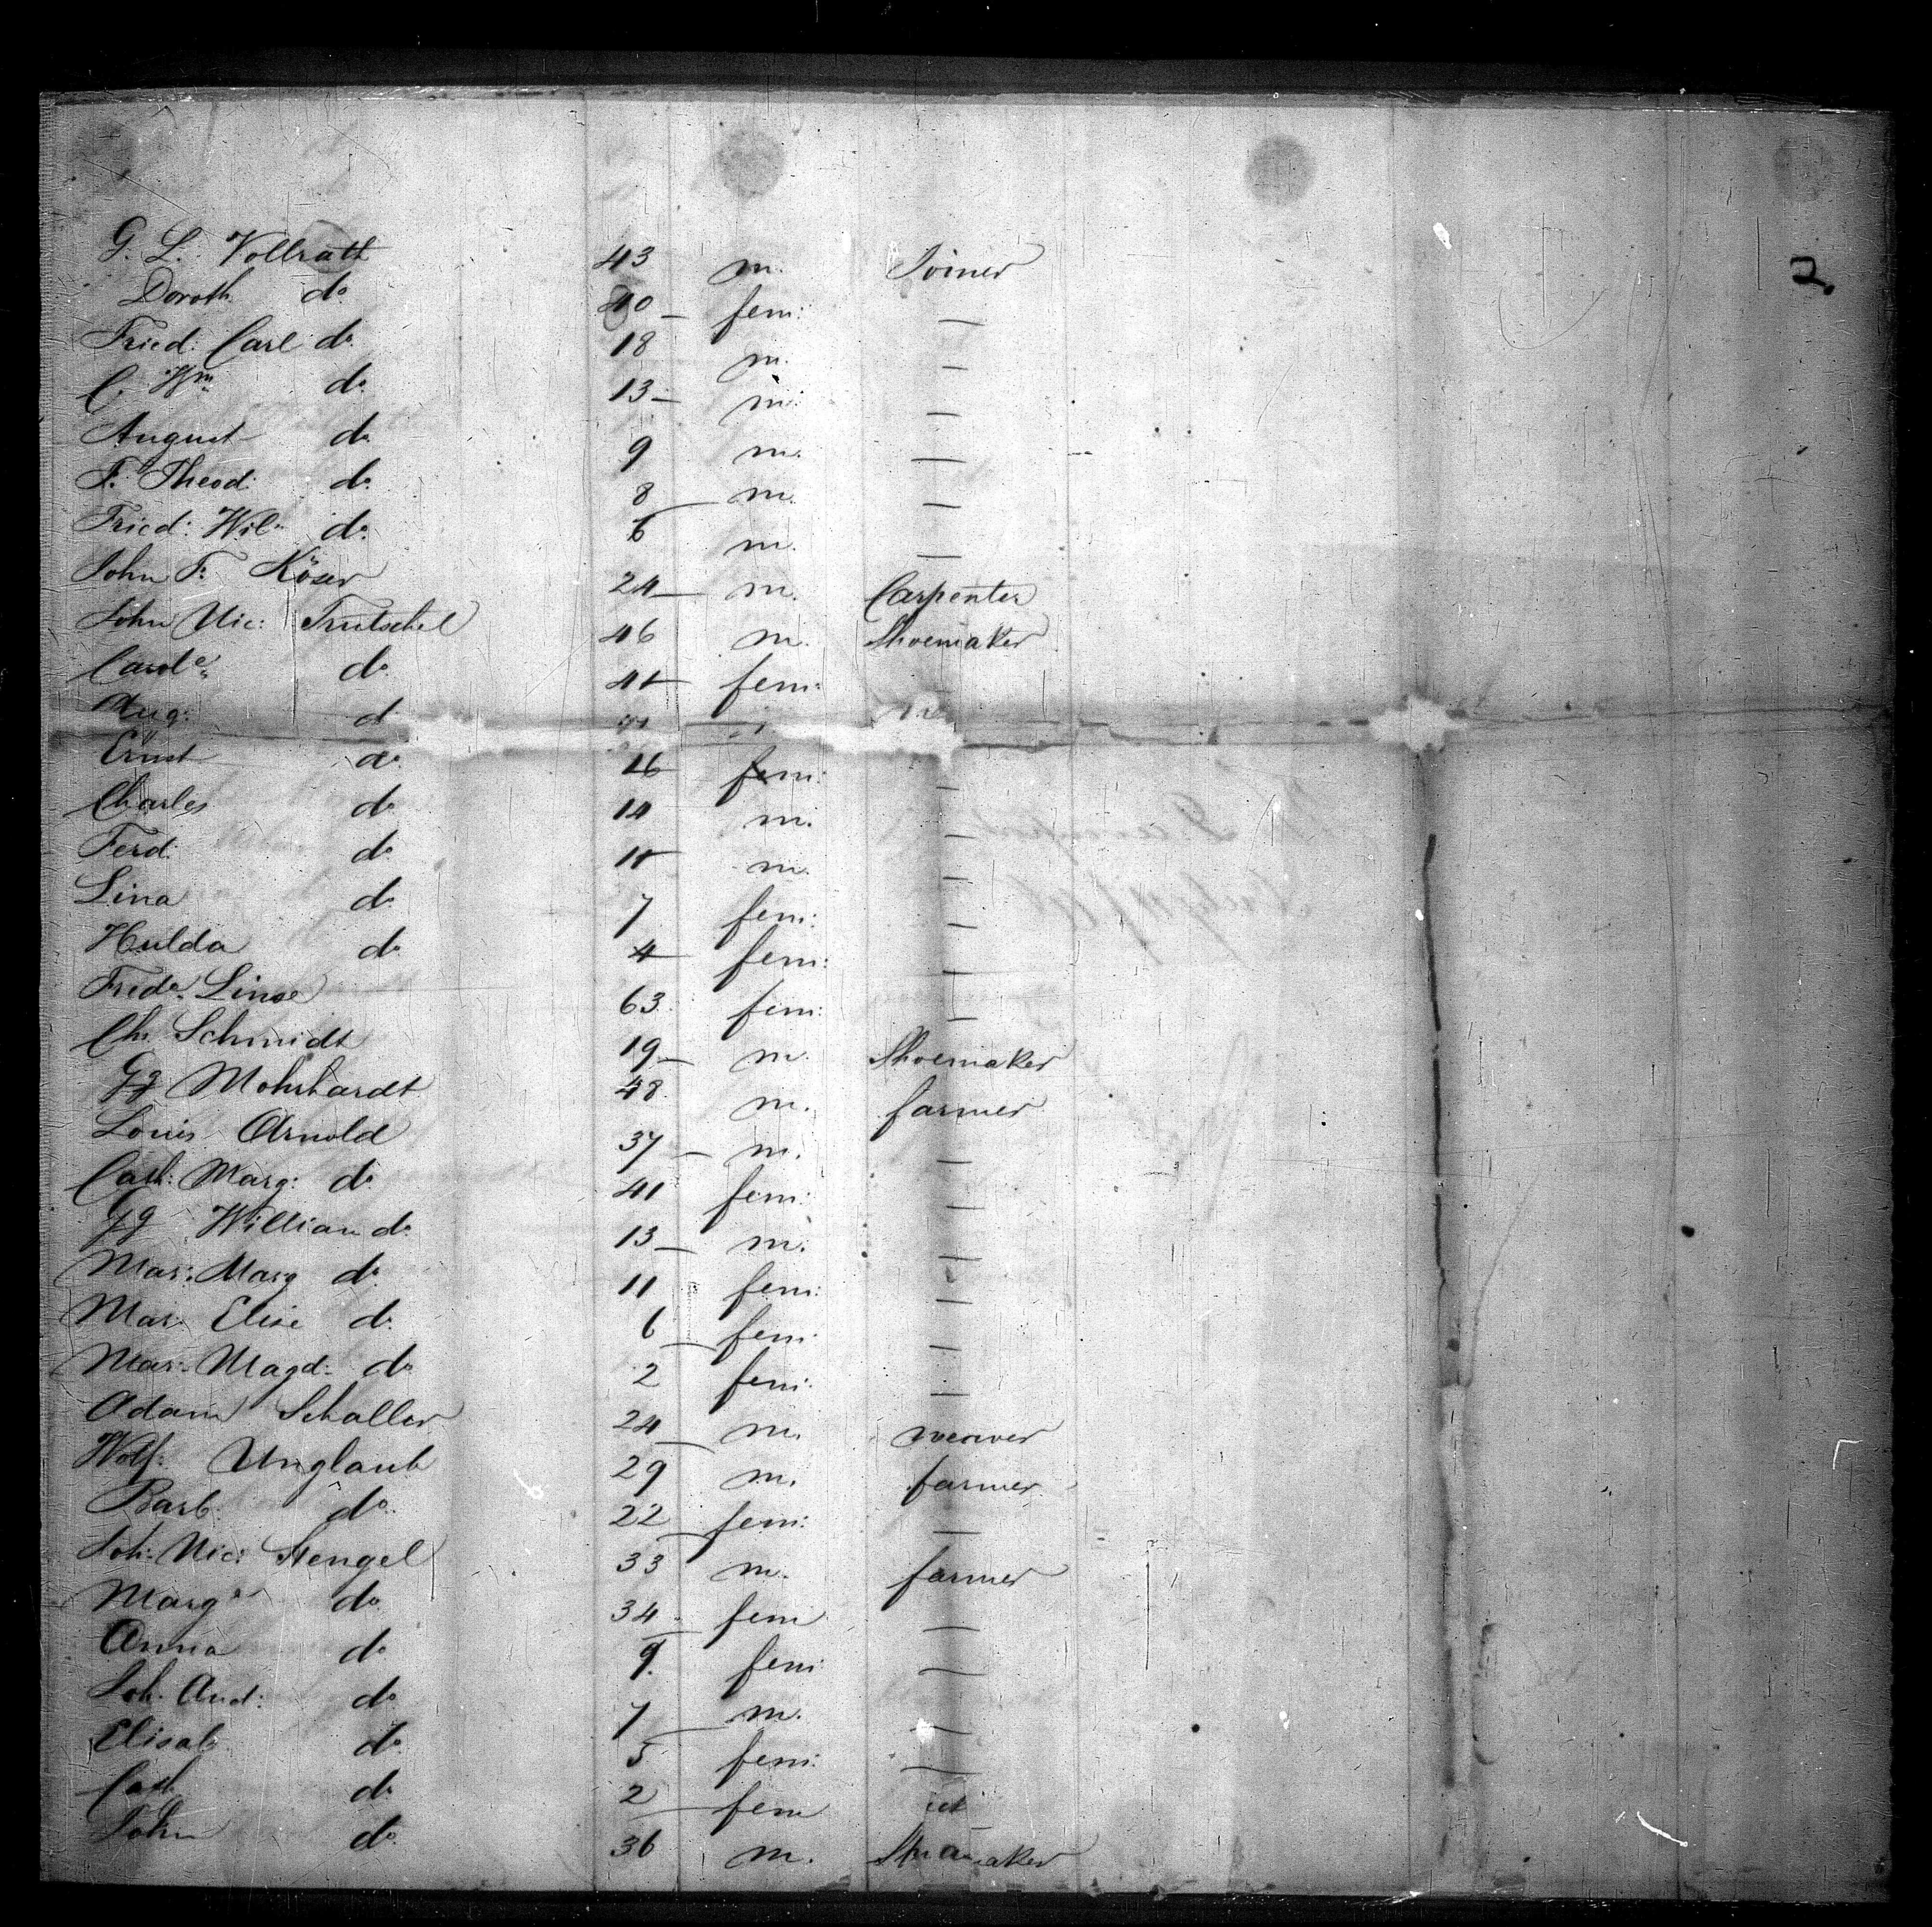 2.
G. L. Vollrath 43 m. Joiner
Doroth. do 40 – fem: —
Fried: Carl do 18 m. —
C. Wm do 13 – m. —
August do 9 m. —
F. Theod: do 8 – m. —
Fried: Wil. do 6 m. —
John F. Köser 24 – m. Carpenter
John Nic: Trutschel 46 m. Shoemaker
Carole do 41 – fem:
Aug: do
Ernst do 16 fem: —
Charles do 14 m. —
Ferd: do 11 m. —
Lina do 7 fem: —
Hulda do 4 – fem: —
Frede. Linse 63 fem: —
Ch. Schmidt 19 – m. Shoemaker
Gg Mohrhardt 48 m. farmer
Louis Arnold 37 – m. —
Cath: Marg: do 41 fem: —
Gg William do 13 – m. —
Mar: Marg do 11 fem: —
Mar: Elise do 6 – fem: —
Mar: Magd: do 2 fem: —
Adam Schaller 24 – m. weaver
Wolf: Unglaub 29 m. farmer
Barb: do 22 – fem: —
Joh: Nic: Stengel 33 m. farmer
Marge do 34 – fem —
Anna do 9. fem: —
Joh. And: do 7 – m. —
Elisab. do 5 fem: —
Cath. do 2 – fem
John do 36 m. Shoemaker